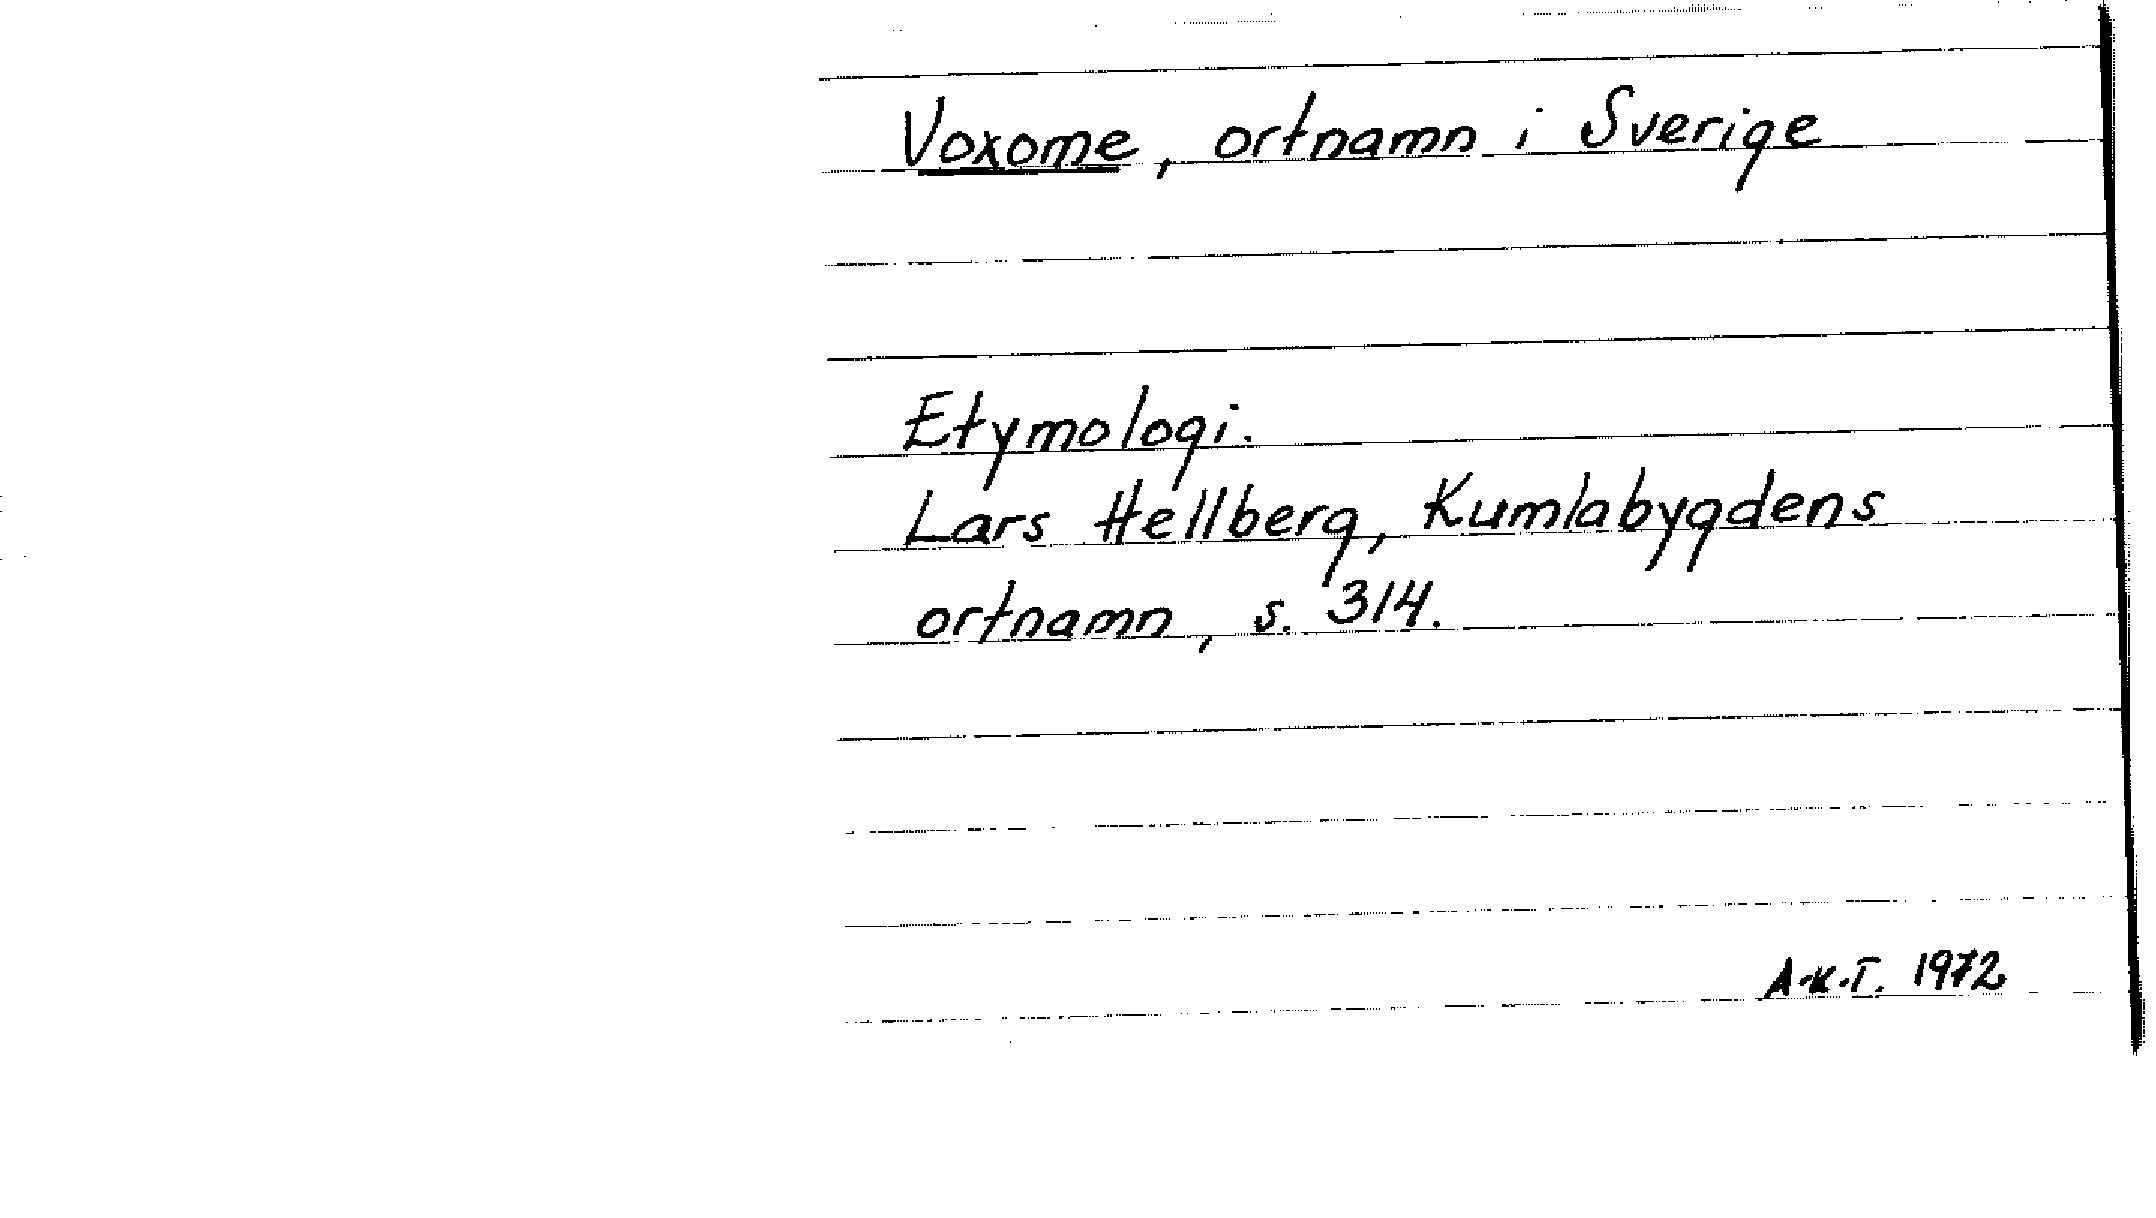 Voxome, ortnamn i Sverige
Etymologi.
Lars Hellberg, Kumlabygdens
ortnamn, s. 314.
A-K.T. 1972